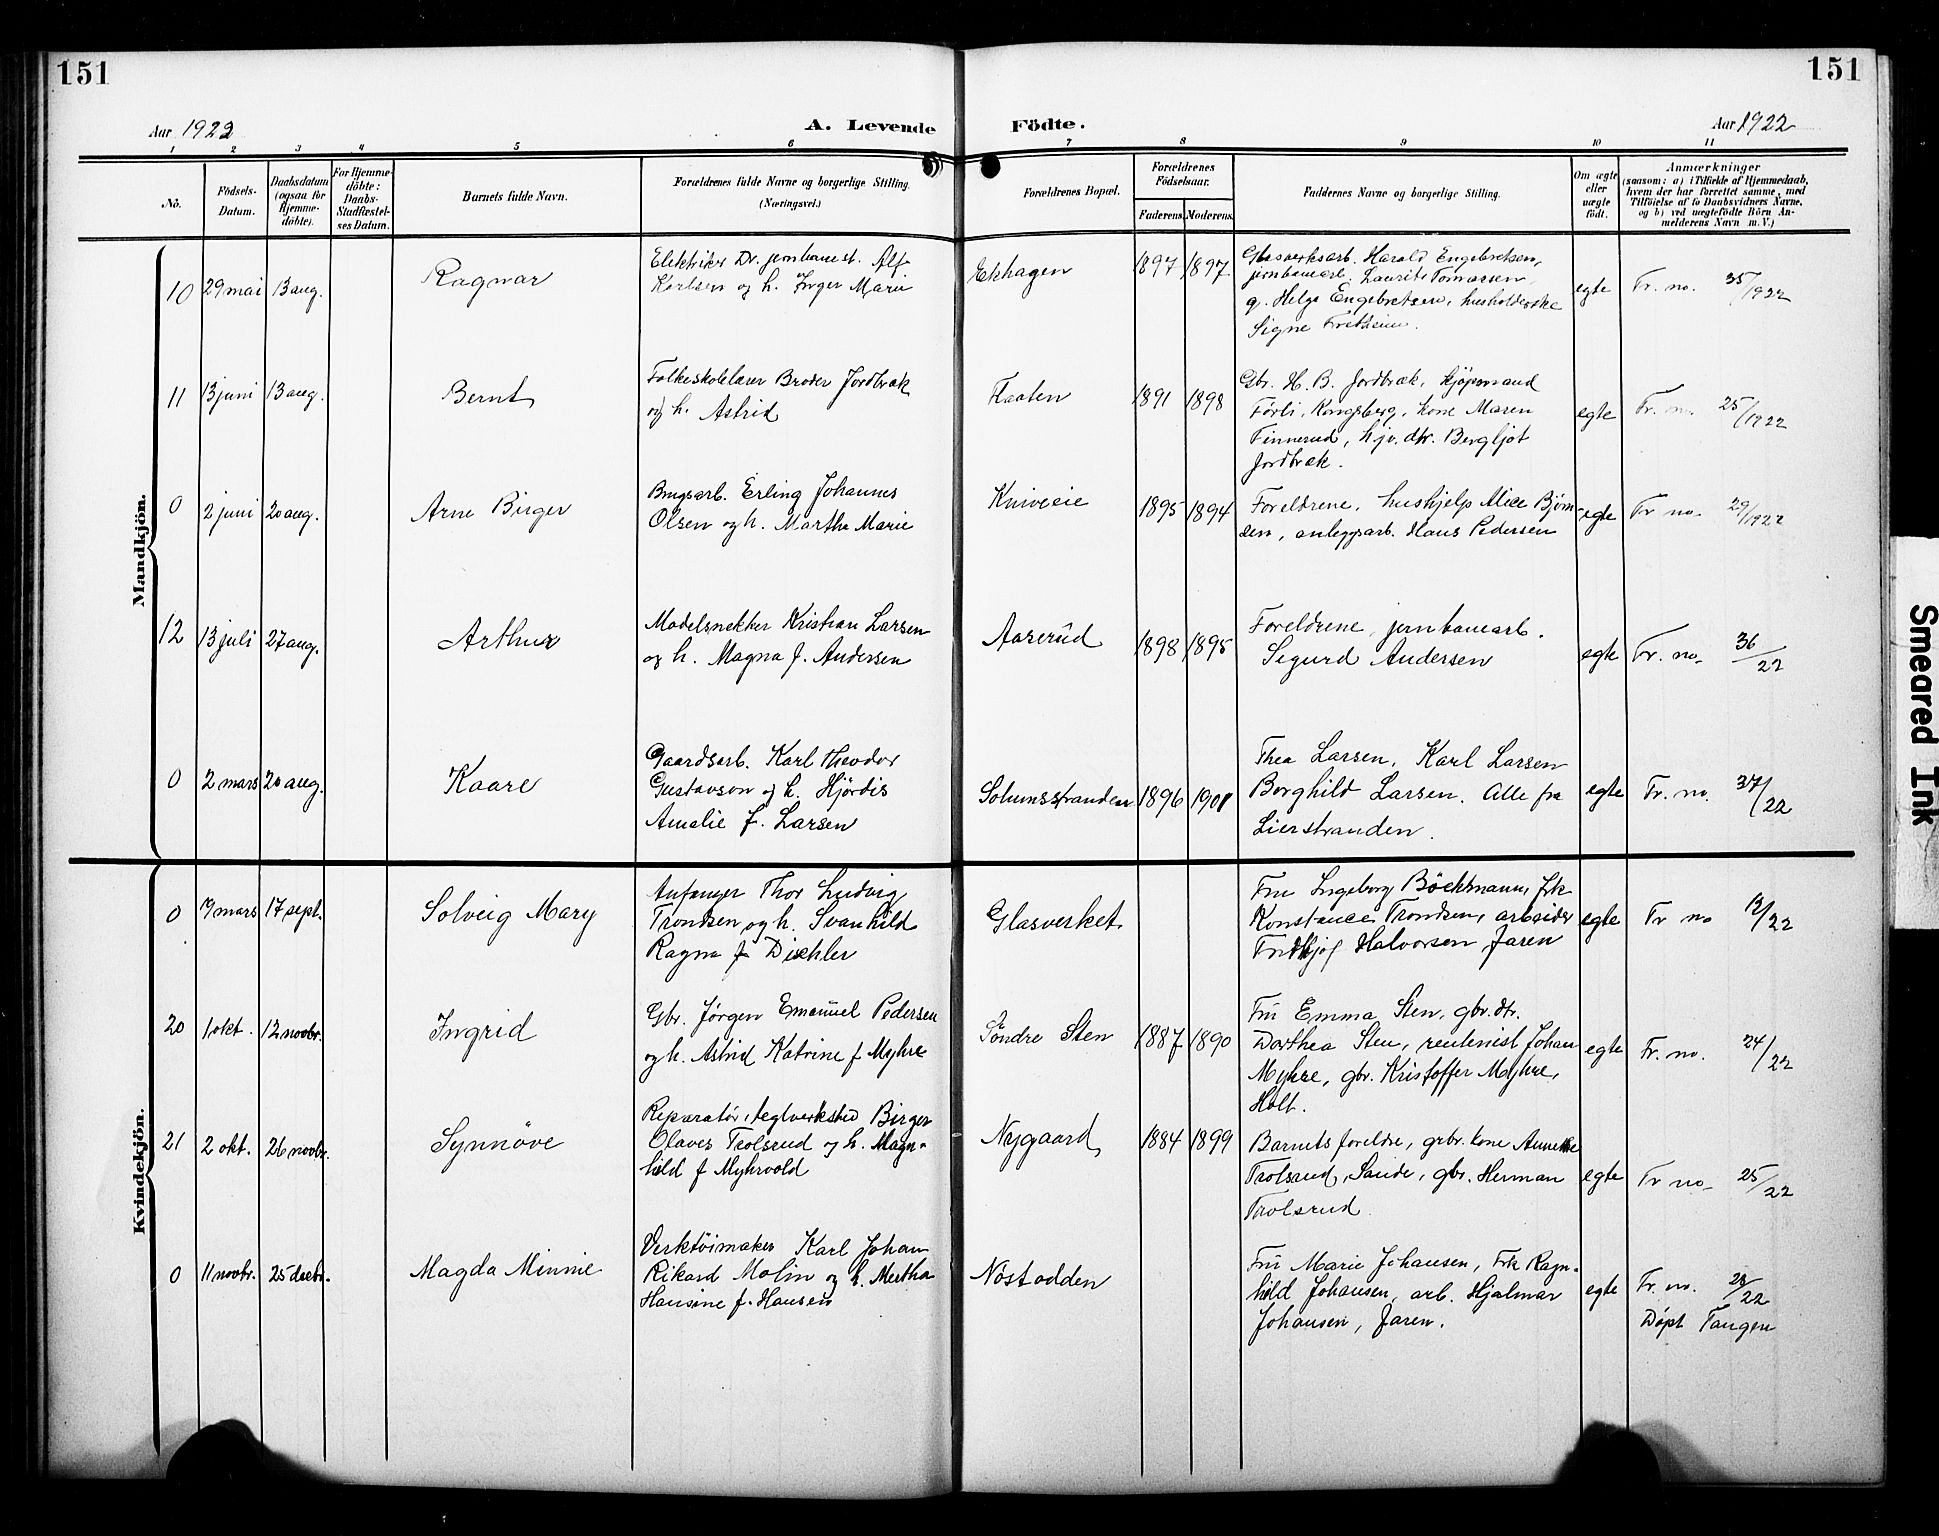 151
151
Aar 1922
A. Levende Födte.
Aar 1922
1 2 3 4 5 6 7 8 9 10 11
No.
Födsels-
Datum.
Daabsdatum
(ogsaa for
Hjemme-
döbte).
For Hjemme-
döbte:
Daabs-
Stadfæstel-
ses Datum.
Barnets fulde Navn.
Forældrenes fulde Navne og borgerlige Stilling.
(Næringsvei.)
Forældrenes Bopæl.
Forældrenes
Födselsaar.
Faderens. Moderens.
Faddernes Navne og borgerlige Stilling.
Om ægte
eller
uægte
födt.
Anmærkninger
(saasom: a) i Tilfælde af Hjemmedaab,
hvem der har forrettet samme, med
Tilföielse af to Daabsvidners Navne,
og b) ved uægtefödte Börn An-
melderens Navn m. V.)
Mandkjön.
10
29 mai
13 aug.
Ragnar
Elektriker Dr. jernbanest. Alf
Karlsen og h. Inger Marie
Ekhagen
1897
1897
Glasverksarb. Harald Engebretsen,
jernbanearb. Laurits Tomassen,
g. Helge Engebretsen, husholderske
Signe Fretheim.
egte
Fr. no. 35/1922
11
13 juni
13 aug.
Bernt
Folkeskolelærer Broder Jordbræk
og h. Astrid
Flaaten
1891
1898
Gbr. H. B. Jordbræk, kjøpmand
Førli, Kongsberg, kone Maren
Finnerud, hjv. dtr. Bergljot
Jordbræk.
egte
Fr. no. 25/1922
0
2 juni
20 aug.
Arne Birger
Brugsarb. Erling Johannes
Olsen og h. Marthe Marie
Kniveie
1895
1894
Foreldrene, hushjelp Alice Bjørn-
sen, anlegsarb. Hans Pedersen
egte
Fr no. 29/1922
12
13 juli
27 aug.
Arthur
Modelsnekker Kristian Larsen
og h. Magna f. Andersen
Aaserud
1898
1895
Foreldrene, jernbanearb.
Sigurd Andersen
egte
Fr. no. 36/22
0
2 mars
20 aug.
Kaare
Gaardsarb. Karl Theodor
Gustavson og h. Hjördis
Amalie f. Larsen
Solumsstranden
1896
1901
Thea Larsen, Karl Larsen
Borghild Larsen. Alle fra
Lierstranden.
egte
Fr. no. 37/22
Kvindekjön.
0
19 mars
17 sept.
Solveig Mary
Anfanger Thor Ludvig
Trondsen og h. Svanhild
Ragna f Dischler
Glasverket
Fru Ingeborg Böckmann, frk
Konstance Trondsen, arbeider
Fridtjof Halvorsen Jaren
egte
Fr no 12/22
20
1 okt.
12 novbr.
Ingrid
Gbr. Jörgen Emanuel Pedersen
og h. Astrid Katrine f Myhre
Søndre Sten
1887
1890
Fru Emma Sten, gbr. dtr.
Dorthea Sten, rentenist Johan
Myhre, gbr. Kristoffer Myhre,
Holt.
egte
Fr. no. 24/22
21
2 okt.
26 novbr.
Synnöve
Reparatør, teglverkstud Birger
Olaves Trolsrud og h. Magn-
hild f Myhrvold
Nygaard
1884
1899
Barnets foreldre, grbr. kone Annette
Trolsrud, Sande, gbr. Herman
Trolsrud
egte
Fr no. 25/22
0
11 novbr.
25 decbr.
Magda Minnie
Verktöimaker Karl Johan
Rikard Molin og h. Mertha
Hansine f. Hansen
Nöstodden
Fru Marie Johansen, Frk Ragn-
hild Johansen, arb. Hjalmar
Johansen, Jaren.
egte
Fr. no. 28/22
Døpt Tangen
Smeared Ink